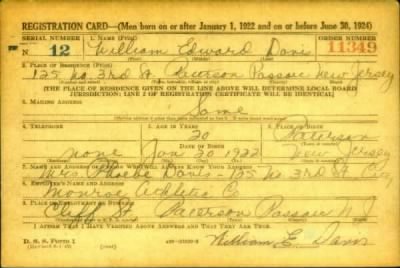 REGISTRATION CARD—(Men born on or after January 1, 1922 and on or before June 30, 1924)
SERIAL NUMBER 1. NAME (Print) ORDER NUMBER
N 12 William Edward Davis 11349
(First) (Middle) (Last)
2. PLACE OF RESIDENCE (Print)
125 No 3rd St. Paterson Passaic New Jersey
[THE PLACE OF RESIDENCE GIVEN ON THE LINE ABOVE WILL DETERMINE LOCAL BOARD
JURISDICTION; LINE 2 OF REGISTRATION CERTIFICATE WILL BE IDENTICAL]
3. MAILING ADDRESS
Same
4. TELEPHONE 5. AGE IN YEARS 6. PLACE OF BIRTH
20 Paterson
DATE OF BIRTH
none Jan 30 1922 New Jersey
7. NAME AND ADDRESS OF PERSON WHO WILL ALWAYS KNOW YOUR ADDRESS
Mrs. Phoebe Davis—125 No 3rd St
8. EMPLOYER'S NAME AND ADDRESS
Monroe Athletic Co
9. PLACE OF EMPLOYMENT OR BUSINESS
Cliff St Paterson Passaic N J
I AFFIRM THAT I HAVE VERIFIED ABOVE ANSWERS AND THAT THEY ARE TRUE.
D. S. S. FORM 1 William E. Davis